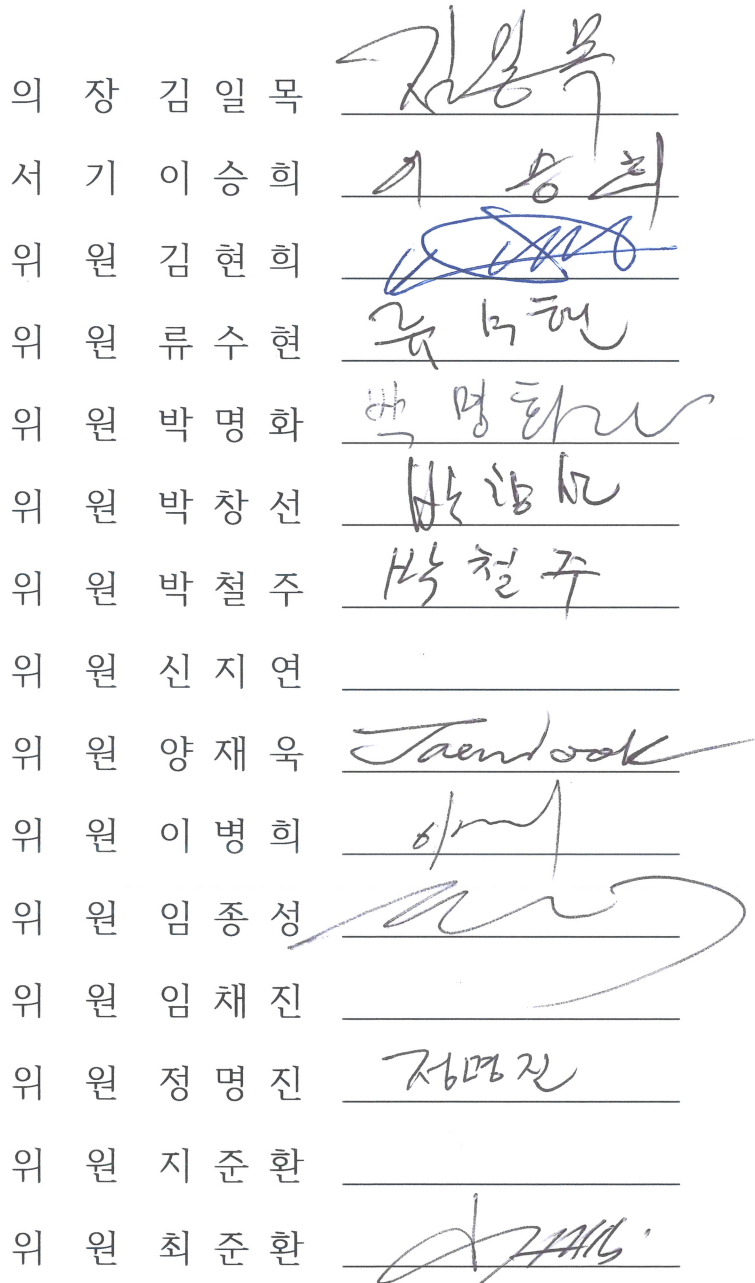 의 장 김 일 목 김일목
서 기 이 승 희 이 승 희
위 원 김 현 희
위 원 류 수 현 류 수 현
위 원 박 명 화 박 명 화
위 원 박 창 선 박 창 선
위 원 박 철 주 박 철 주
위 원 신 지 연
위 원 양 재 욱 Jaewook
위 원 이 병 희
위 원 임 종 성
위 원 임 채 진
위 원 정 명 진 정명진
위 원 지 준 환
위 원 최 준 환